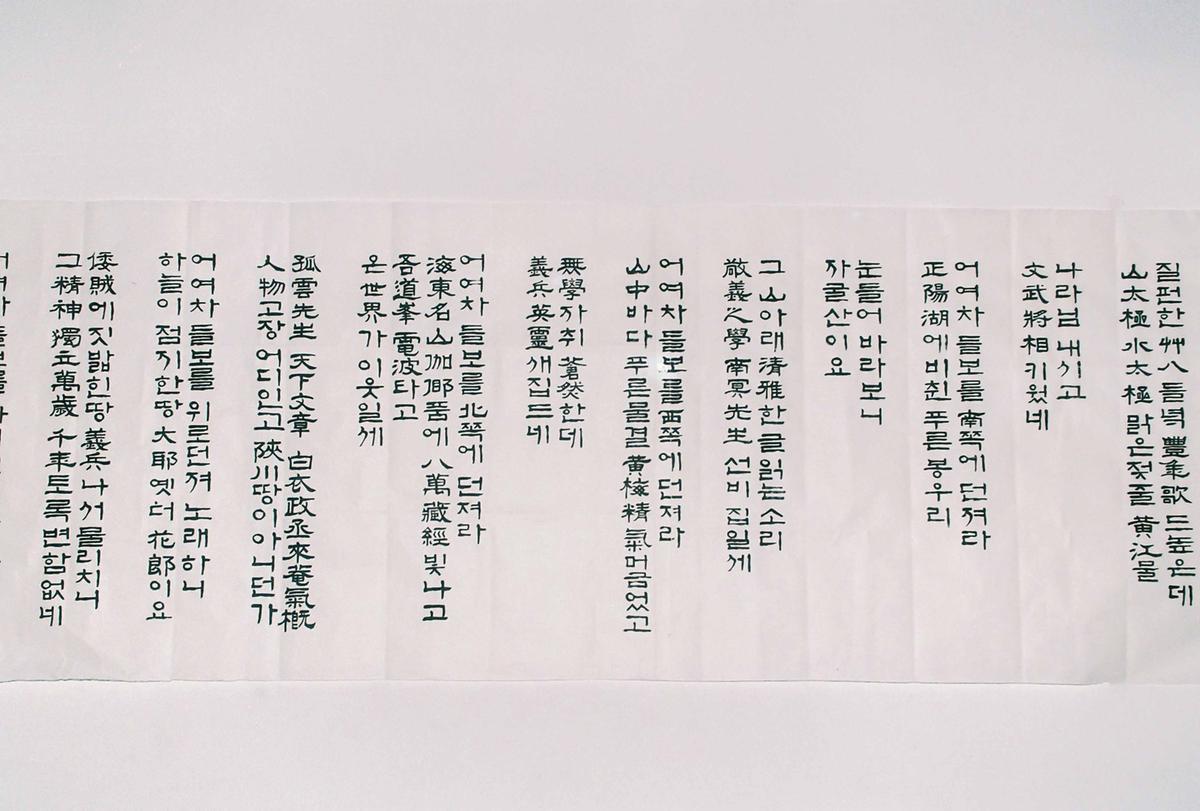 질펀한 艸八 들녘 豐年歌 드높은데
山太極 水太極 맑은 젖줄 黃江물
나라님 내시고
文武將相 키웠네
어여차 들보를 南쪽에 던져라
正陽湖에 비친 푸른 봉우리
눈들어 바라보니
자굴산이요
그 山아래 清雅한 글 읽는 소리
敬義之學 南冥先生 선비 집일세
어여차 들보를 西쪽에 던져라
山中바다 푸른물결 黃梅精氣 머금었고
無學자취 蒼然한데
義兵英靈 깨집드네
어여차 들보를 北쪽에 던져라
海東名山 伽倻품에 八萬藏經 빛나고
吾道峯 電波타고
온世界가 이웃일세
孤雲先生 天下文章 白衣政丞 來菴氣槪
人物고장 어디인고 陜川땅이 아니던가
어여차 들보를 위로던져 노래하니
하늘이 점지한땅 大耶옛터 花郞이요
倭賊에 짓밟힌땅 義兵나서 물리치니
그精神 獨立萬歲 千年토록 변함없네